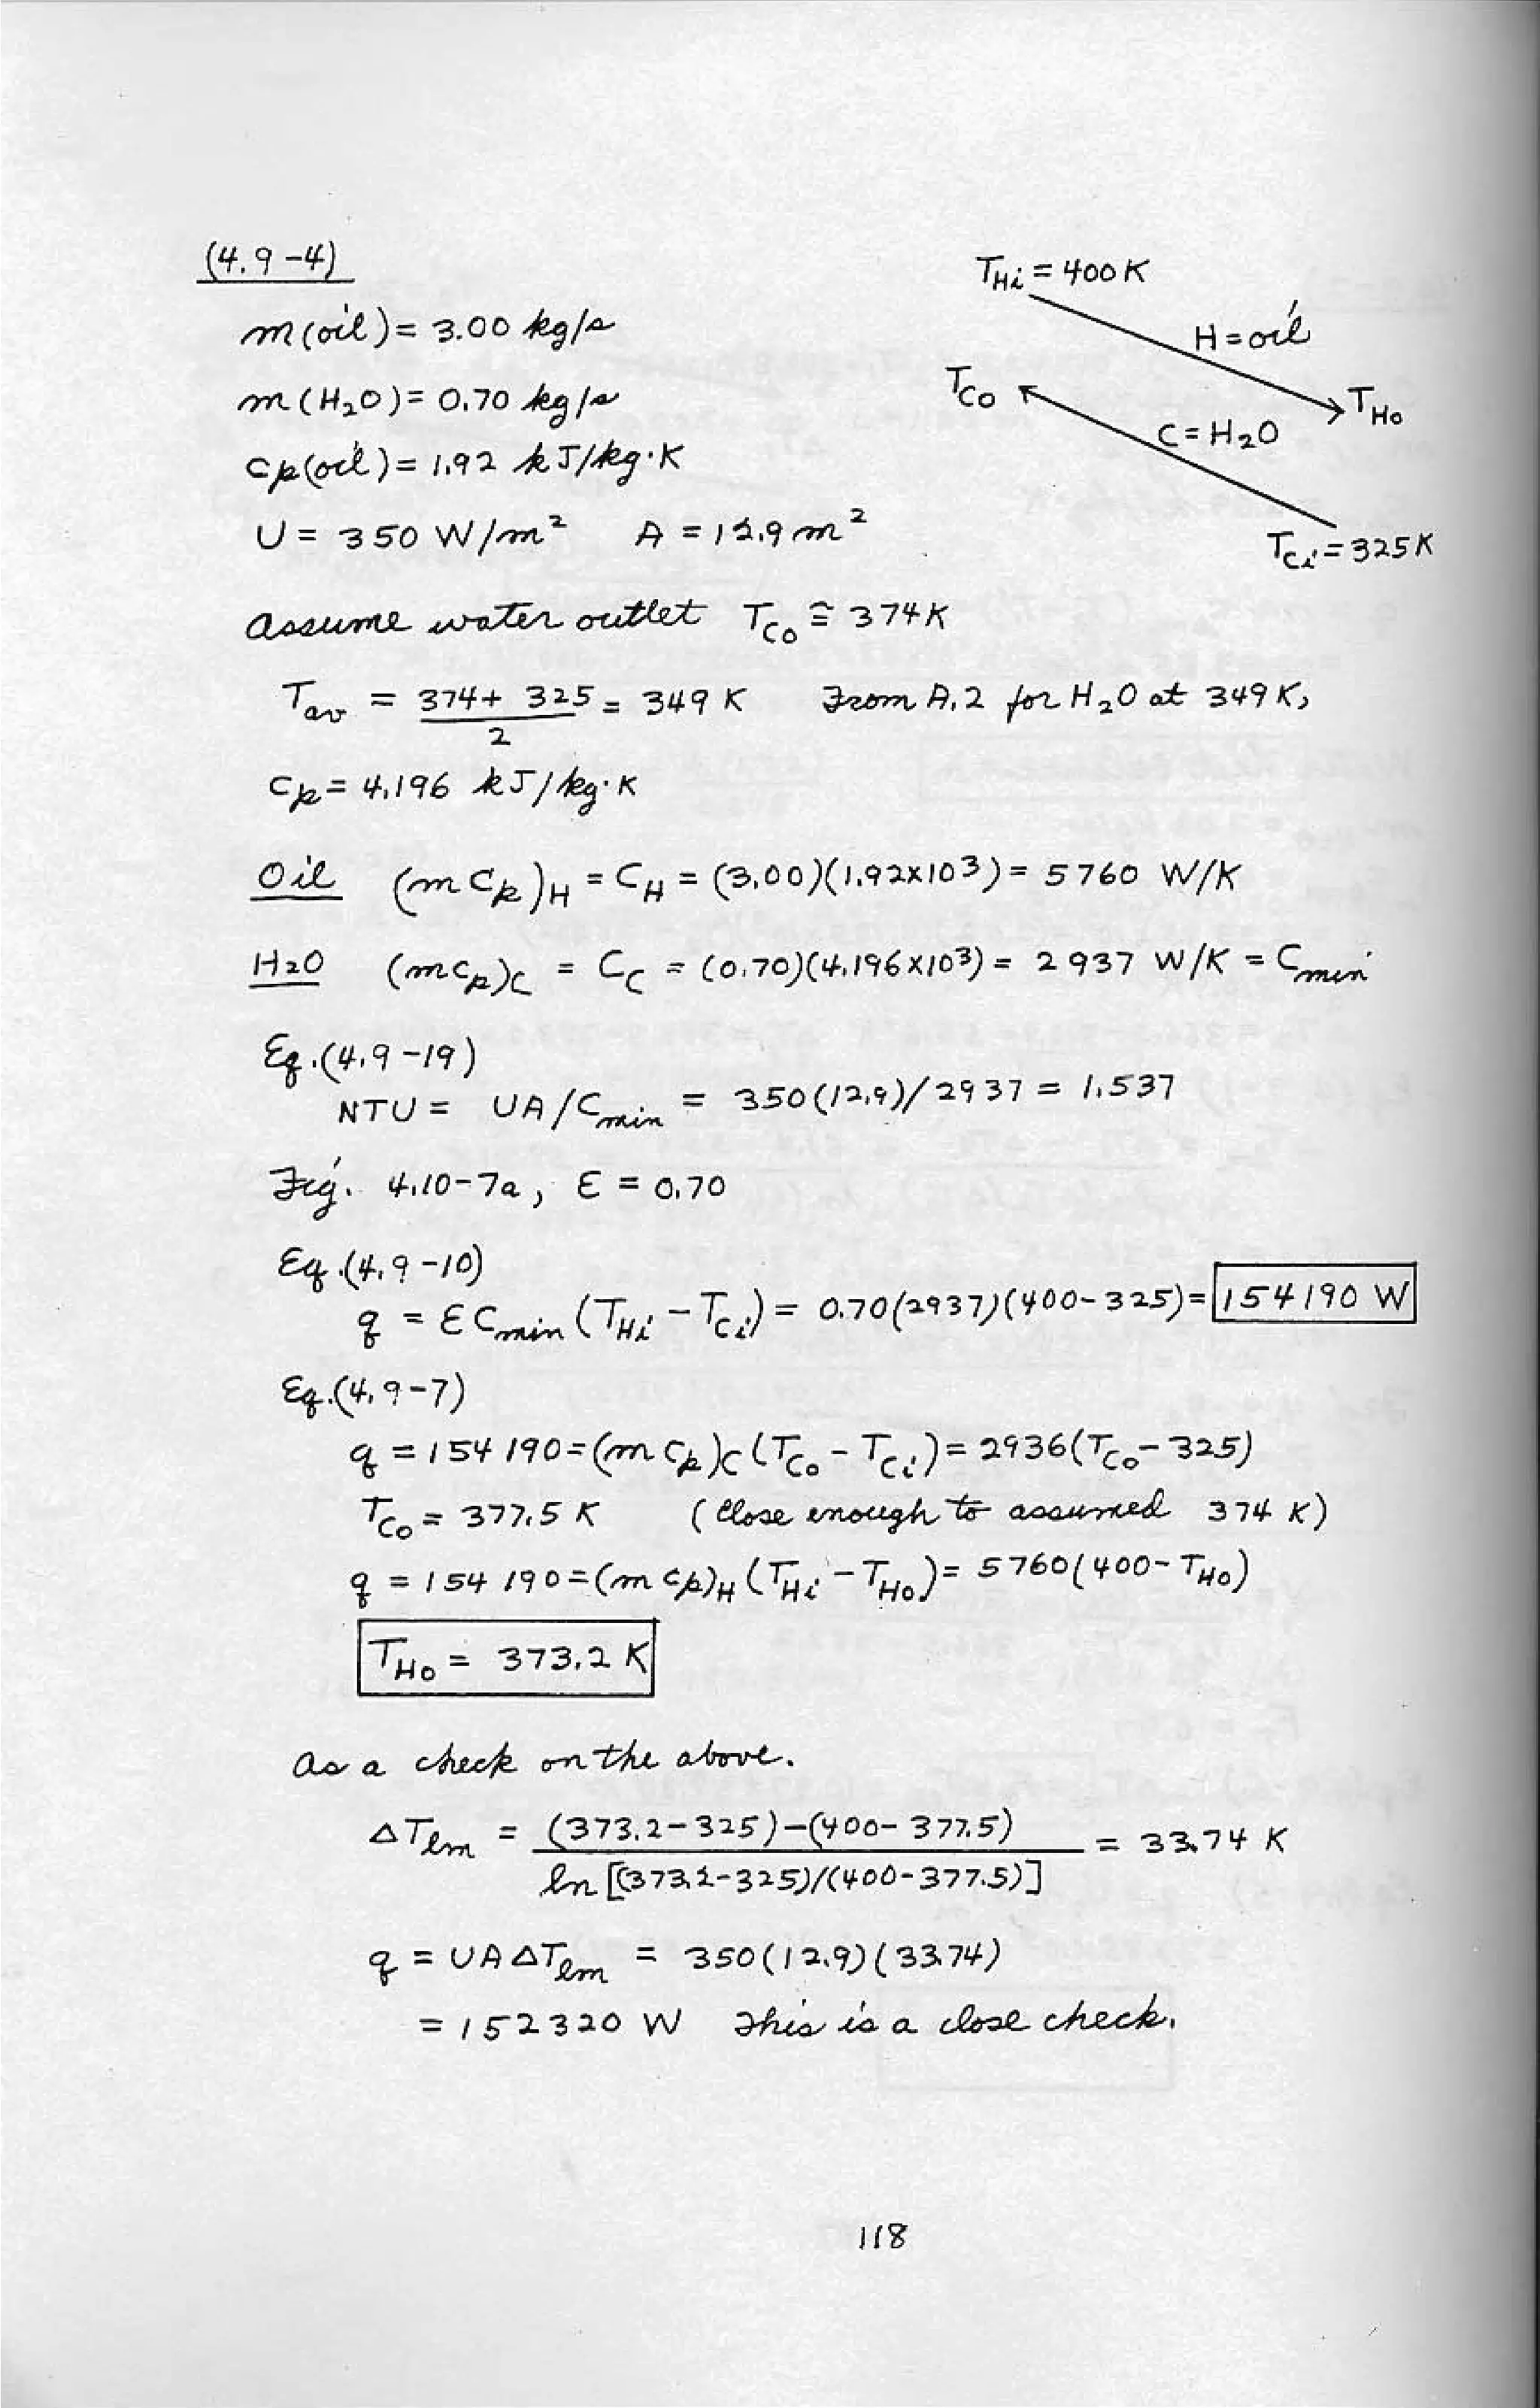 (4.9-4)
T_Hi = 400 K
m(oil) = 3.00 kg/s
H = oil
m(H₂O) = 0.70 kg/s
T_Co
T_Ho
C = H₂O
cp(oil) = 1.92 kJ/kg·K
U = 350 W/m² A = 12.9 m²
T_Ci = 325 K
Assume water outlet T_Co ≅ 374 K
T_av = (374 + 325)/2 = 349 K From A.2 for H₂O at 349 K,
cp = 4.196 kJ/kg·K
Oil (m cp)_H = C_H = (3.00)(1.92x10³) = 5760 W/K
H₂O (m cp)_C = C_C = (0.70)(4.196x10³) = 2937 W/K = C_min
Eq.(4.9-19)
NTU = UA/C_min = 350(12.9)/2937 = 1.537
Fig. 4.10-7a, ε = 0.70
Eq.(4.9-10)
q = ε C_min (T_Hi - T_Ci) = 0.70(2937)(400-325) = 154190 W
Eq.(4.9-7)
q = 154 190 = (m cp)_C (T_Co - T_Ci) = 2936(T_Co - 325)
T_Co = 377.5 K (Close enough to assumed 374 K)
q = 154 190 = (m cp)_H (T_Hi - T_Ho) = 5760(400 - T_Ho)
T_Ho = 373.2 K
As a check on the above.
ΔT_lm = ((373.2-325)-(400-377.5))/(ln [(373.2-325)/(400-377.5)]) = 33.74 K
q = UAΔT_lm = 350(12.9)(33.74)
= 152320 W This is a close check.
118